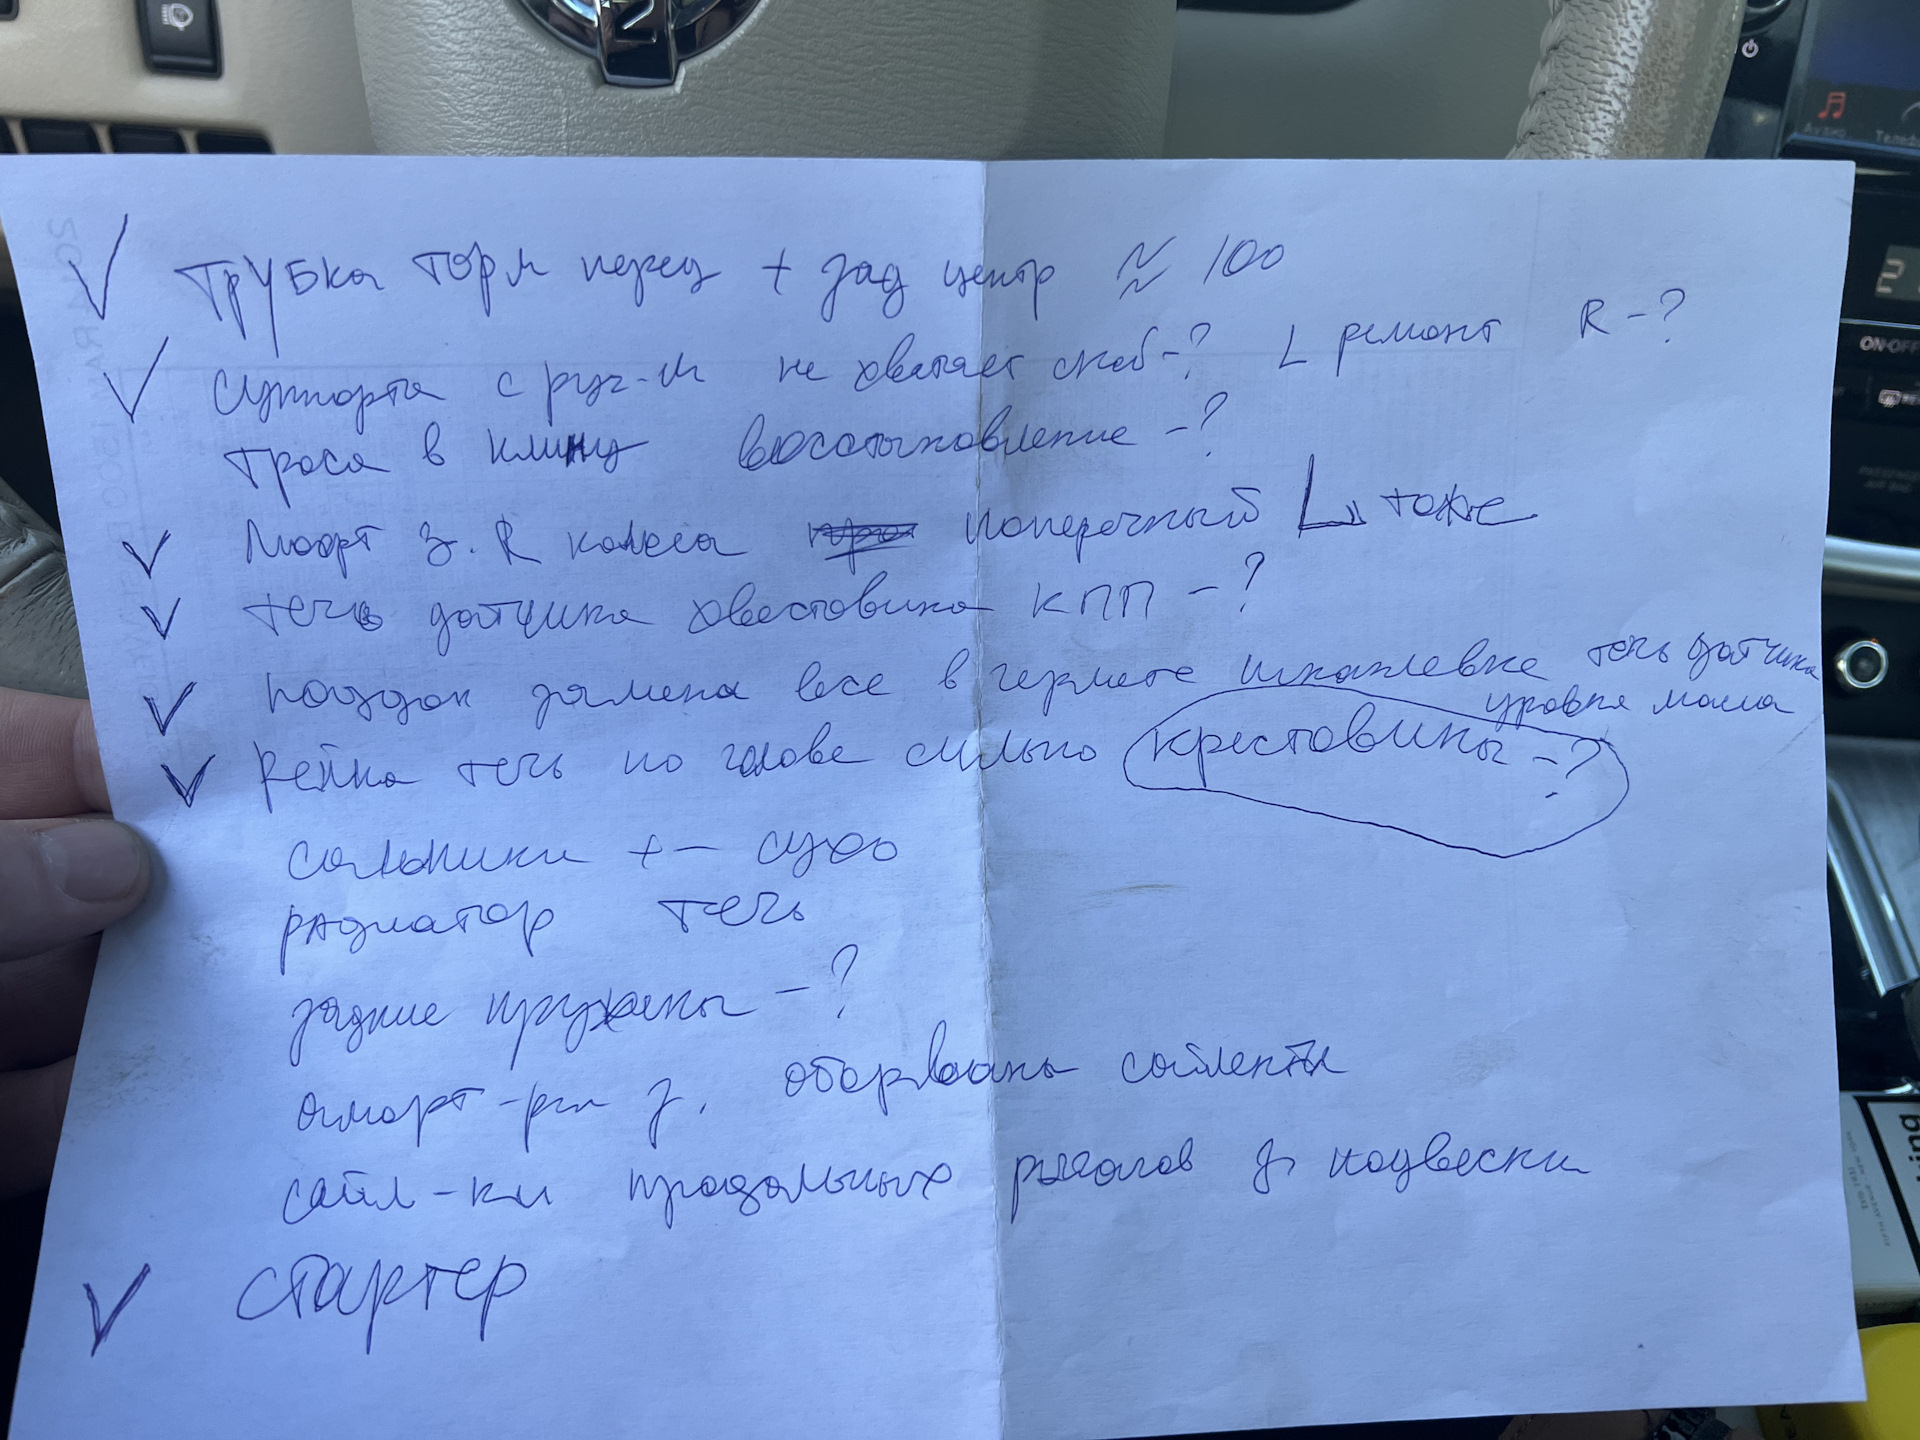 ✓ Трубка торм перед + зад центр ≈ 100
✓ Суппорта с руч-м не хватает скоб-? L ремонт R-?
троса в клину восстановление -?
✓ Люфт З. R колеса поперечный L тоже
✓ течь датчика хвестовика КПП -?
✓ поддон замена все в гермете шпаклевке течь датчика
уровня масла
✓ Рейка течь по голове сильно крестовины -?
сальники +- сухо
радиатор течь
задние пружины -?
аморт-ры з. оборваны сайленты
сайл-ки продольных рычагов з. подвески
✓ стартер
Аудио
ON·OFF